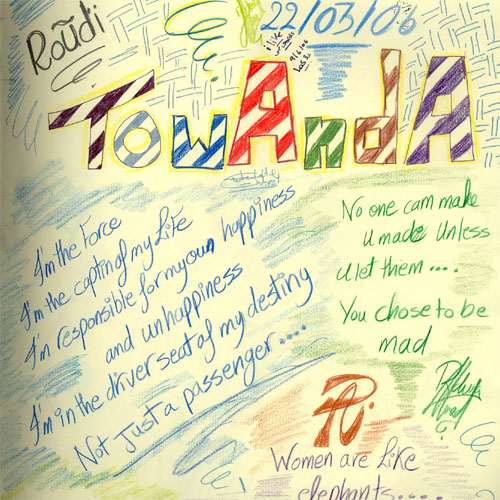 Roudi
22/03/06
TowAndA
I'm the Force
I'm the captin of my Life
I'm responsible for my own happiness
and unhappiness
I'm in the driver seat of my destiny
Not Just a passenger....
No one cam make
u made Unless
u let them....
You chose to be
mad
R.
Women are Like
elephants....